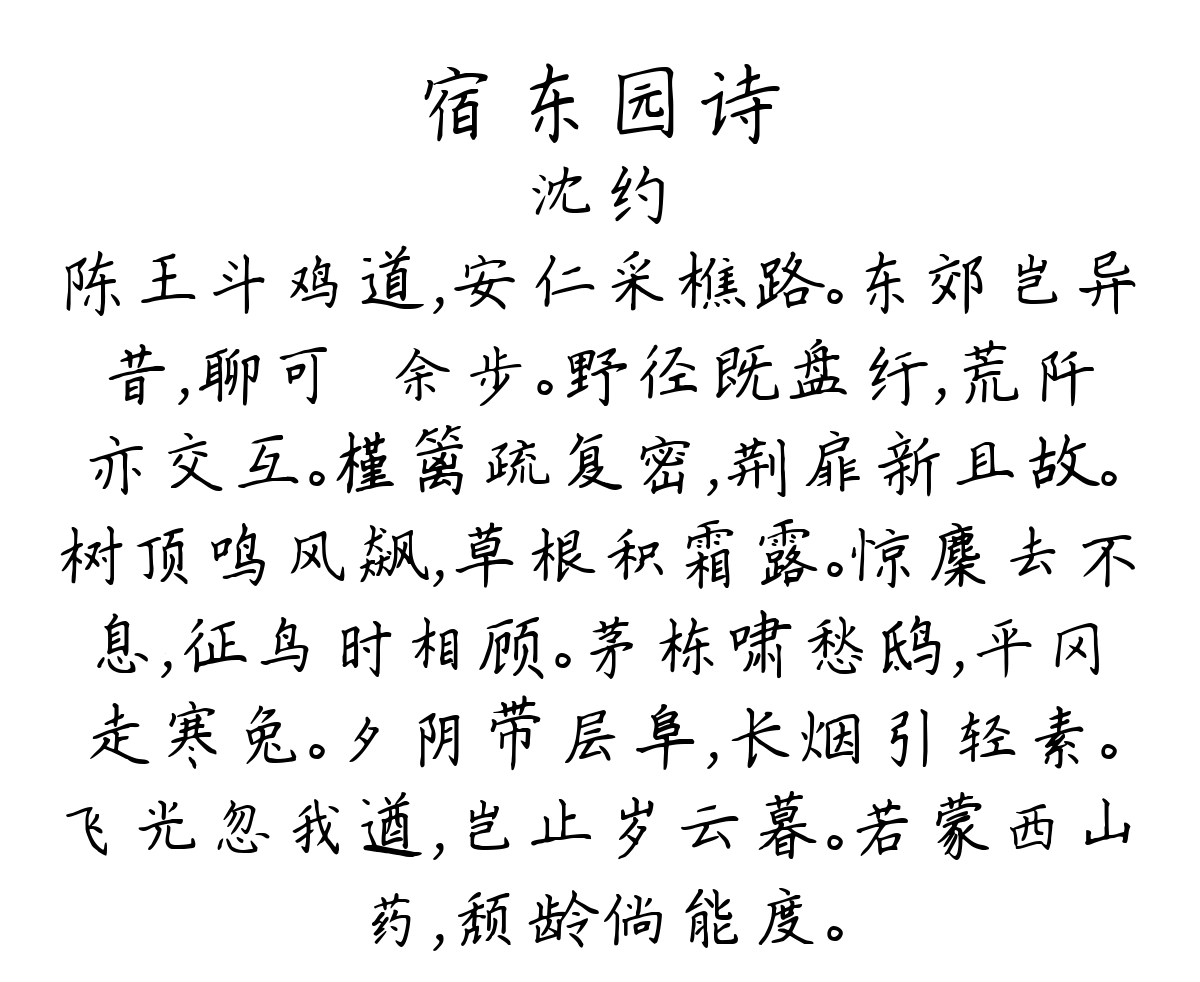 宿东园诗
沈约
陈王斗鸡道,安仁采樵路。东郊岂异
昔,聊可 余步。野径既盘纡,荒阡
亦交互。槿篱疏复密,荆扉新且故。
树顶鸣风飙,草根积霜露。惊麇去不
息,征鸟时相顾。茅栋啸愁鸱,平冈
走寒兔。夕阴带层阜,长烟引轻素。
飞光忽我遒,岂止岁云暮。若蒙西山
药,颓龄倘能度。